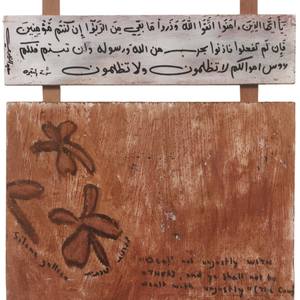 يا ايها الذين ءامنوا اتقوا الله وذروا ما بقي من الربوا إن كنتم مؤمنين
فإن لم تفعلوا فاذنوا بحرب من الله ورسوله وان تبتم فلكم
رءوس اموالكم لا تظلمون ولا تظلمون
Silene gallica
"Deal not unjustly with
others, and ye shall not be
dealt with unjustly" (The Cow